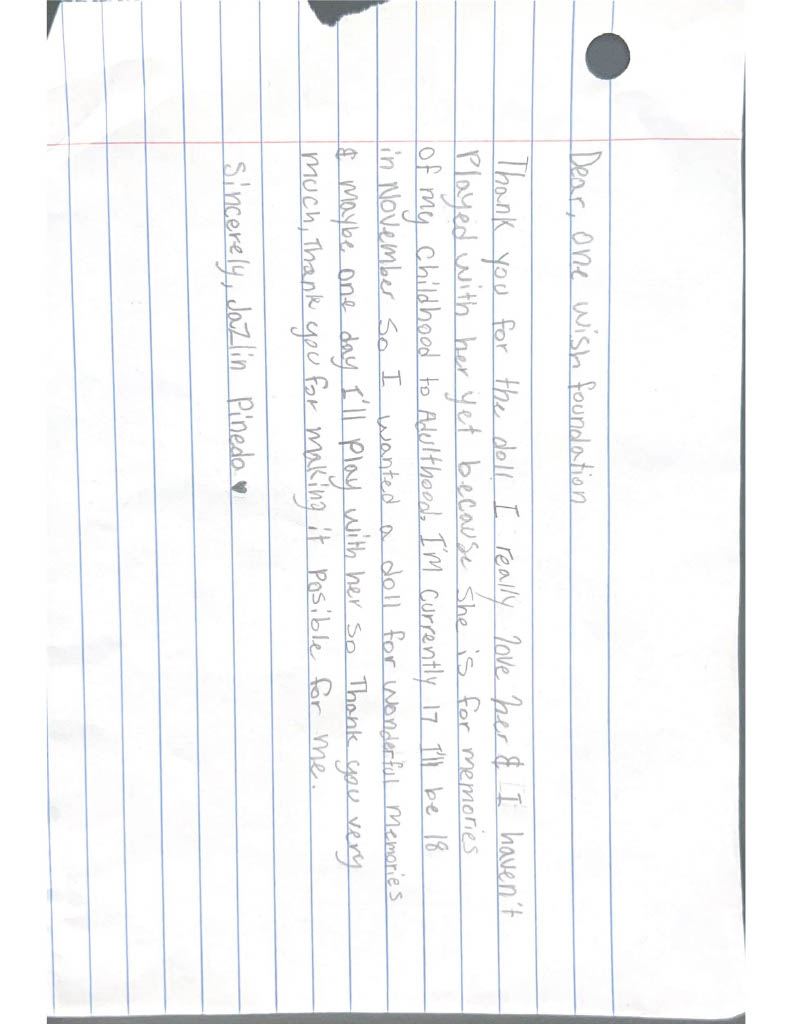 Dear, One wish foundation
Thank you for the doll I really love her & I haven't
Played with her yet because she is for memories
of my childhood to Adulthood. I'm currently 17 I'll be 18
in November so I wanted a doll for wonderful memories
& maybe one day I'll play with her so Thank you very
much, Thank you for making it posible for me.
Sincerely, Jazlin Pineda ♥